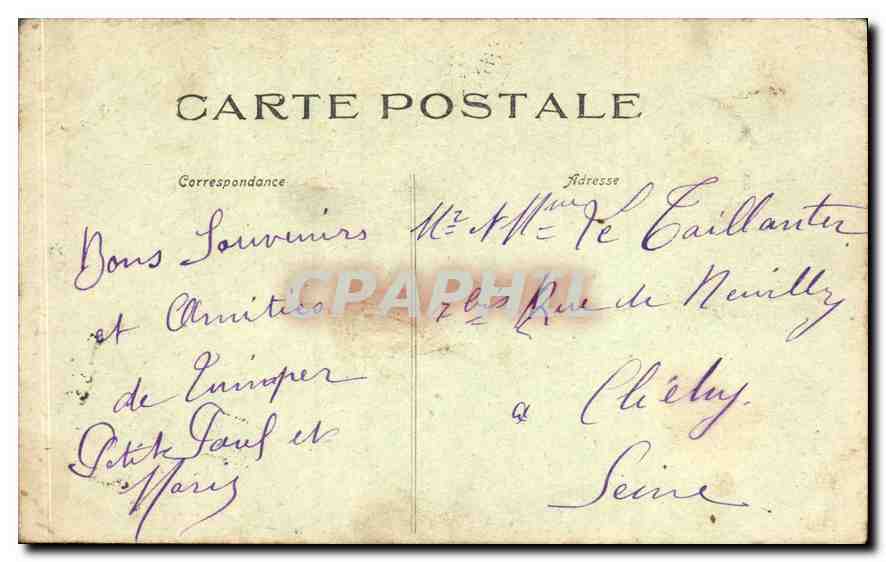 CARTE POSTALE
Correspondance
Adresse
Bons Souvenirs
et Amities
de Quimper
Petit Paul et
Marie
Mr & Mme Le Taillanter
7 bis Rue de Neuilly
a Clichy.
Seine
CPAPHIL